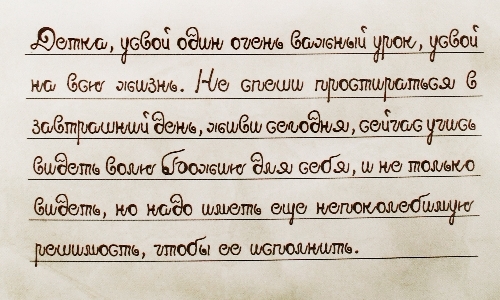 Детка, усвой один очень важный урок, усвой
на всю жизнь. Не спеши простираться в
завтрашний день, живи сегодня, сейчас учись
видеть волю Божию для себя, и не только
видеть, но надо иметь еще непоколебимую
решимость, чтобы ее исполнить.